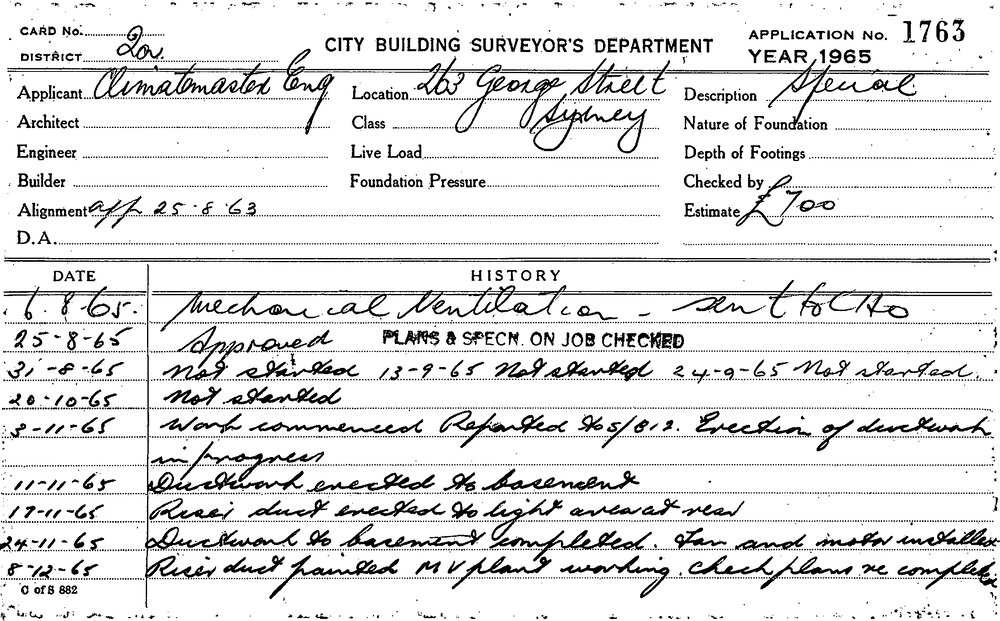 CARD No.
DISTRICT 2a
CITY BUILDING SURVEYOR'S DEPARTMENT
APPLICATION No. 1763
YEAR 1965
Applicant Climatemaster Eng Location 263 George Street Description Special
Architect Class Sydney Nature of Foundation
Engineer Live Load Depth of Footings
Builder Foundation Pressure Checked by
Alignment app 25-8-63 Estimate £700
D.A.
DATE HISTORY
6.8.65. Mechanical Ventilation - sent to CHO
25-8-65 Approved PLANS & SPECN. ON JOB CHECKED
31-8-65 Not started 13-9-65 Not started 24-9-65 Not started.
20-10-65 Not started
3-11-65 Work commenced Reported to S/812. Erection of ductwork
in progress
11-11-65 Ductwork erected to basement
17-11-65 Riser duct erected to light area at rear
24-11-65 Ductwork to basement completed. Fan and motor installed
8-12-65 Riser duct painted MV plant working. Check plans re completed
C of S 882